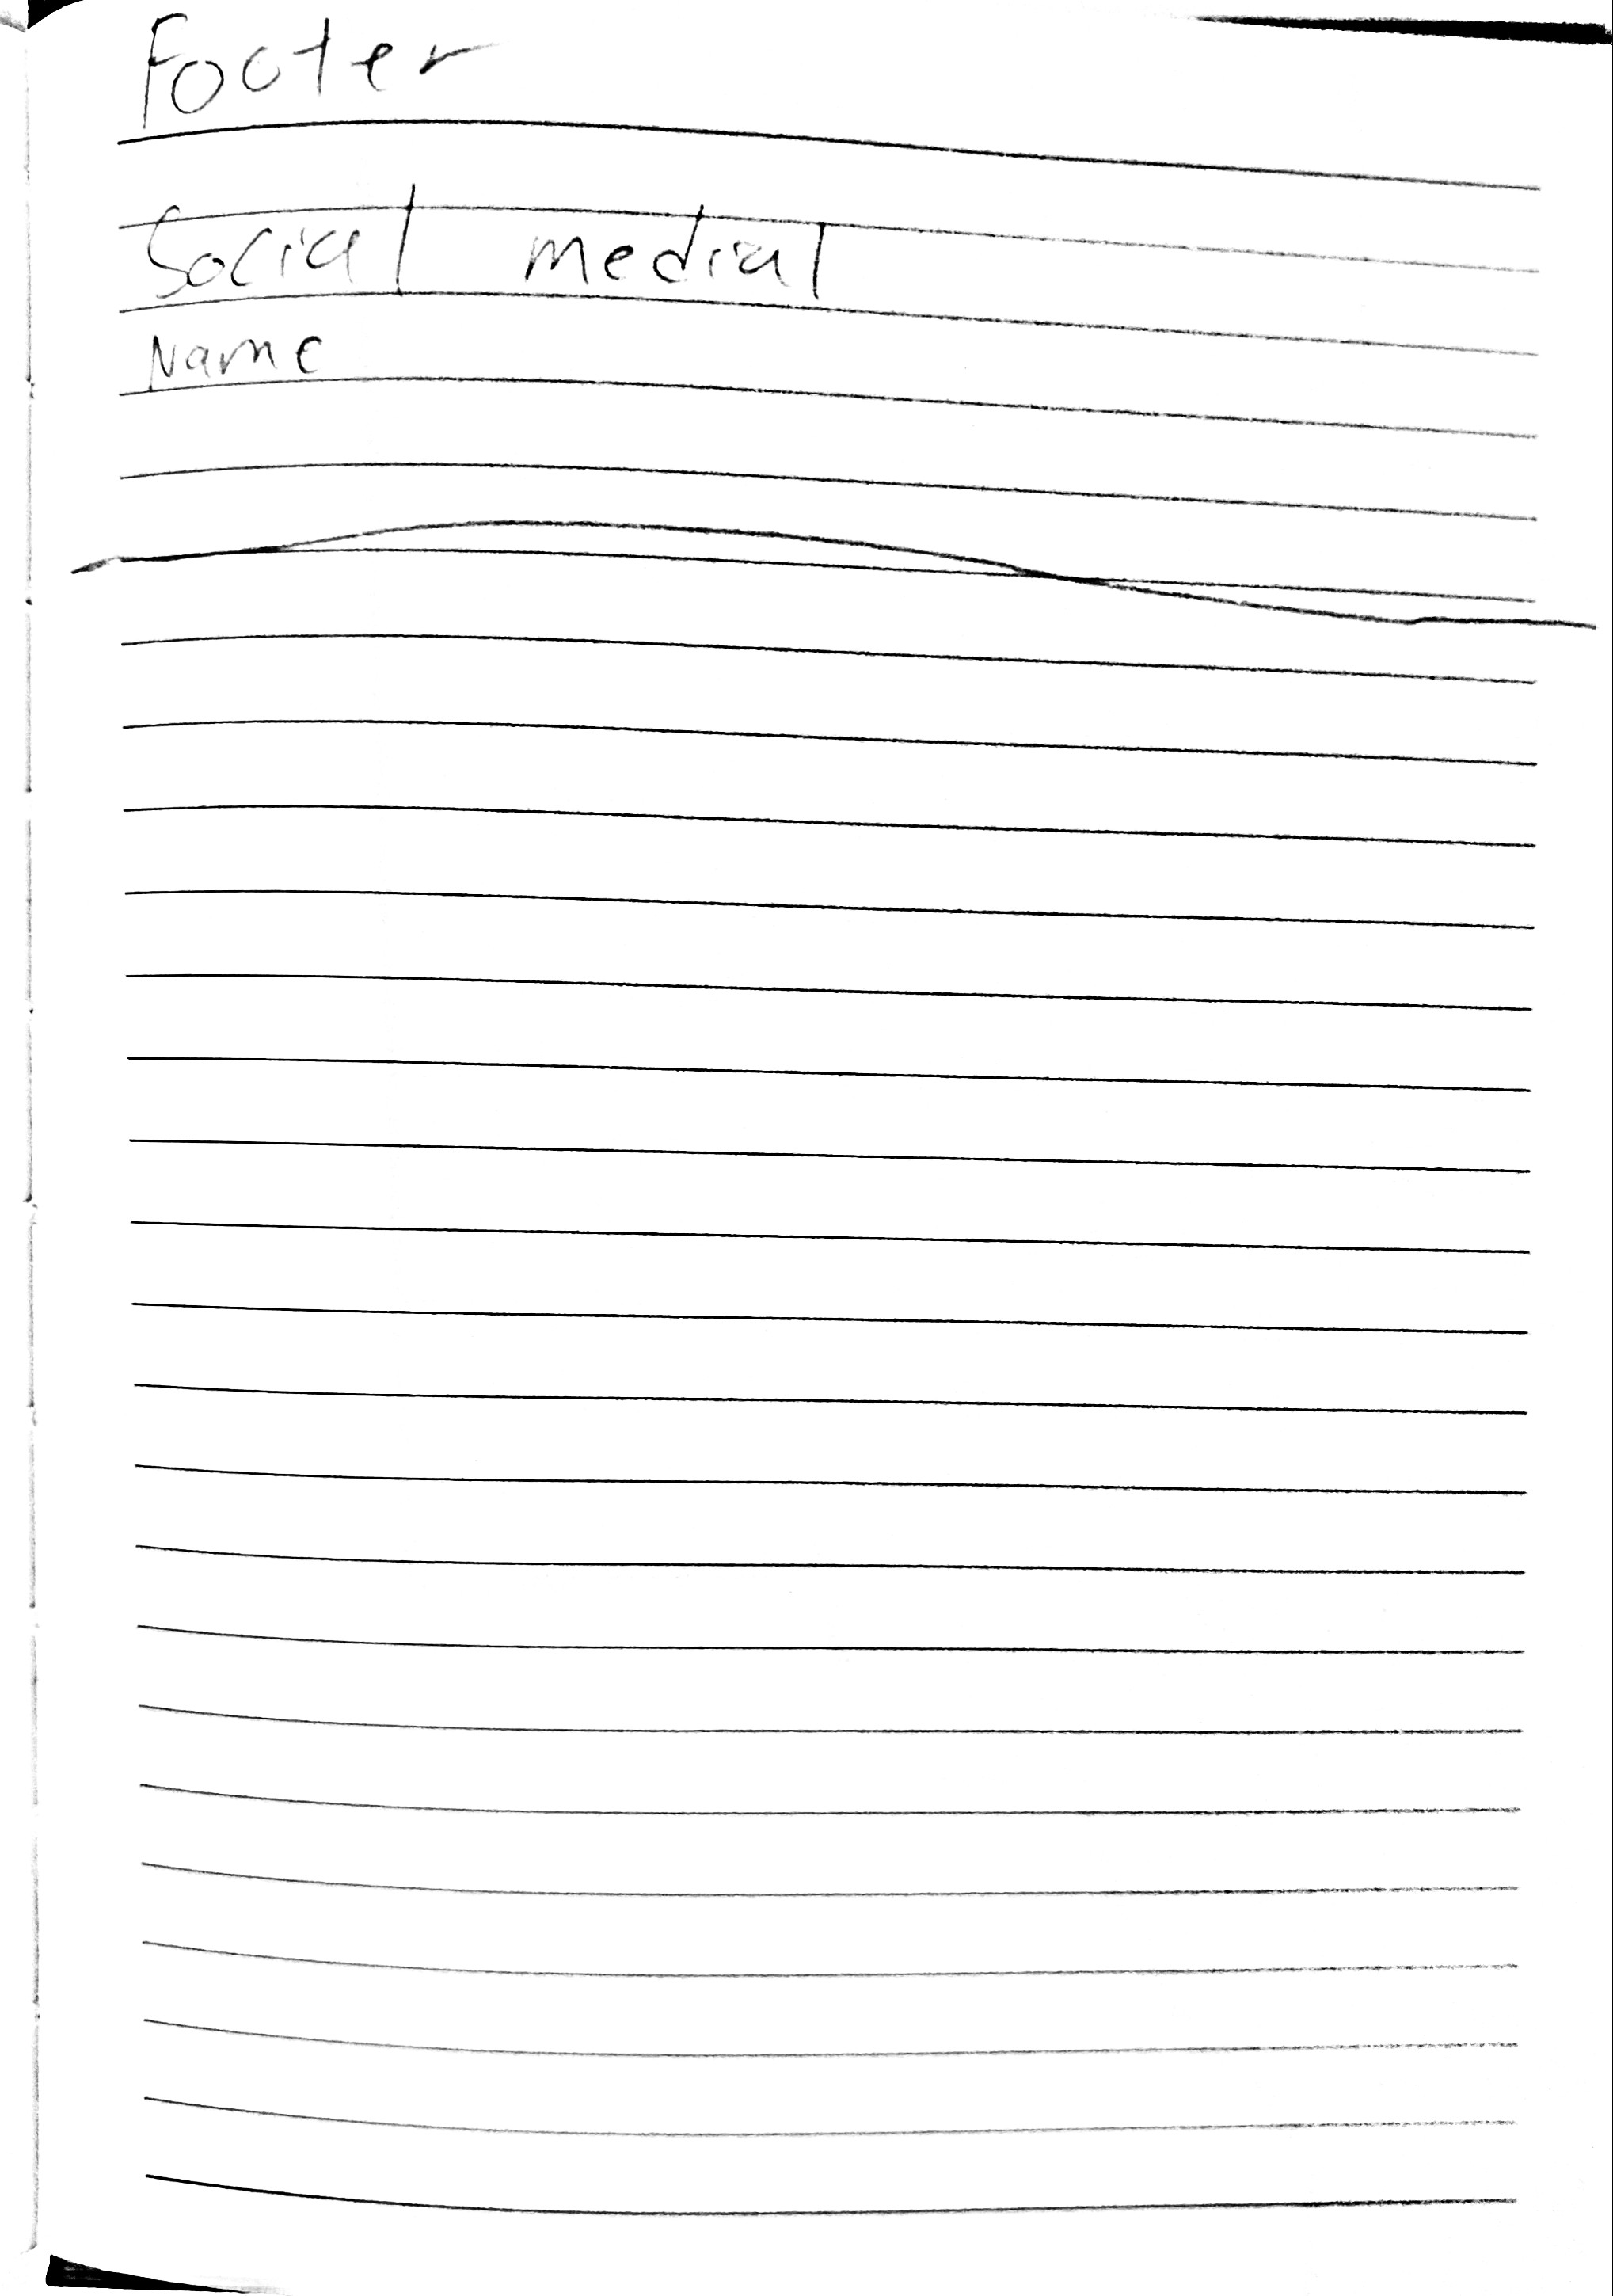 Footer
Social medial
Name